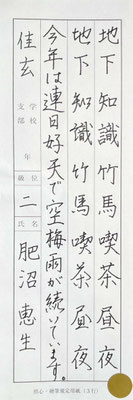 地下知識竹馬喫茶昼夜
地下知識竹馬喫茶昼夜
今年は連日好天で空梅雨が続いています。
佳玄 支部 学校 年 級位 二 氏名 肥沼恵生
硬心・硬筆規定用紙(3行)